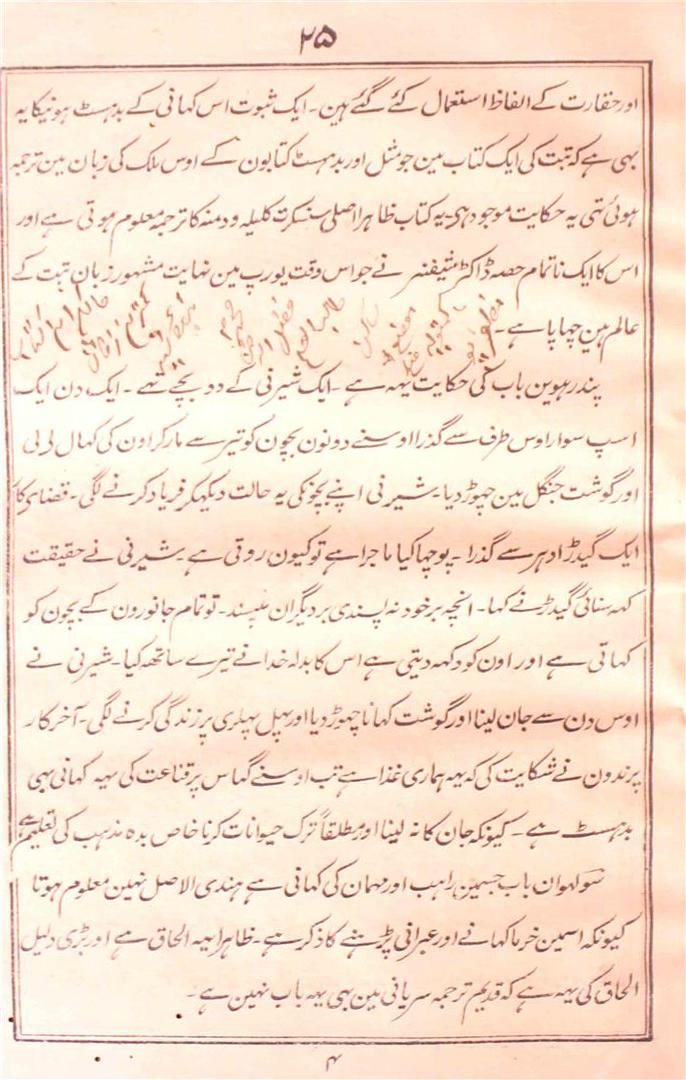 ۲۵
اور حقارت کے الفاظ استعمال کئے گئے ہین۔ ایک ثبوت اس کہانی کے بدہسٹ ہونیکا یہ
بہی ہے کہ تبت کی ایک کتاب مین جو مثل اور بدہسٹ کتابون کے اوس ملک کی زبان مین ترجمہ
ہوئی تہی یہ حکایت موجود ہی۔ یہ کتاب ظاہرا اصلی سنسکرت کلیلہ و دمنہ کا ترجمہ معلوم ہوتی ہے اور
اس کا ایک ناتمام حصہ ڈاکٹر شیفنر نے جو اس وقت یورپ مین نہایت مشہور زبان تبت کے
عالم ہین چہاپا ہے۔
پندرہوین باب کی حکایت یہہ ہے۔ ایک شیرنی کے دو بچے تہے۔ ایک دن ایک
اسپ سوار اوس طرف سے گذرا اوسنے دونون بچون کو تیر سے مار کر اون کی کہال لی لی
اور گوشت جنگل مین چہوڑ دیا۔ شیرنی اپنے بچونکی یہ حالت دیکہکر فریاد کرنے لگی۔ قضای کار
ایک گیدڑ ادہر سے گذرا۔ پوچہا کیا ماجرا ہے تو کیون روتی ہے۔ شیرنی نے حقیقت
کہہ سنائی گیدڑ نے کہا۔ انچہ بر خود نہ پسندی بر دیگران مپسند۔ تو تمام جانورون کے بچون کو
کہاتی ہے اور اون کو دکہہ دیتی ہے اس کا بدلہ خدا نے تیرے ساتہہ کیا۔ شیرنی نے
اوس دن سے جان لینا اور گوشت کہانا چہوڑ دیا اور پہل پہلری پر زندگی کرنے لگی۔ آخرکار
پرندون نے شکایت کی کہ یہہ ہماری غذا ہے تب اوسنے گہاس پر قناعت کی یہہ کہانی بہی
بدہسٹ ہے۔ کیونکہ جان کا نہ لینا اور مطلقاً ترک حیوانات کرنا خاص بدہ مذہب کی تعلیم ہے
سولہوان باب جسمین راہب اور مہمان کی کہانی ہے ہندی الاصل نہین معلوم ہوتا
کیونکہ اسمین خرما کہانے اور عبرانی پڑہنے کا ذکر ہے۔ ظاہرا یہہ الحاق ہے اور بڑی دلیل
الحاق کی یہہ ہے کہ قدیم ترجمہ سریانی مین بہی یہہ باب نہین ہے۔
۴